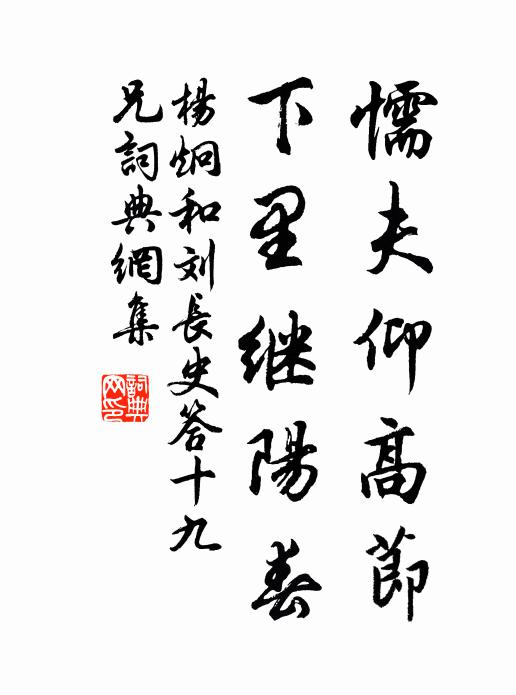 懦夫仰高節
下里继陽春
楊炯和刘長史答十九
兄詞典網集
詞典
网印